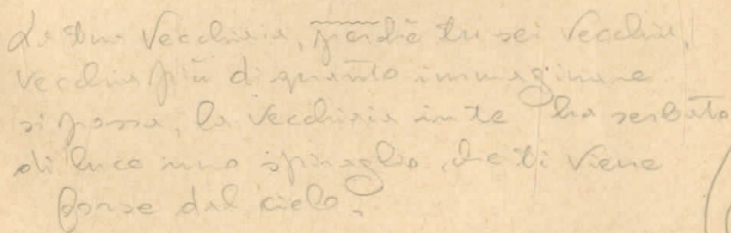 La tua Vecchiaia, perché tu sei Vecchia,
vecchia più di quanto immaginare
si possa, la Vecchiaia in te ha serbato
di luce uno spiraglio che ti Viene
forse dal cielo.